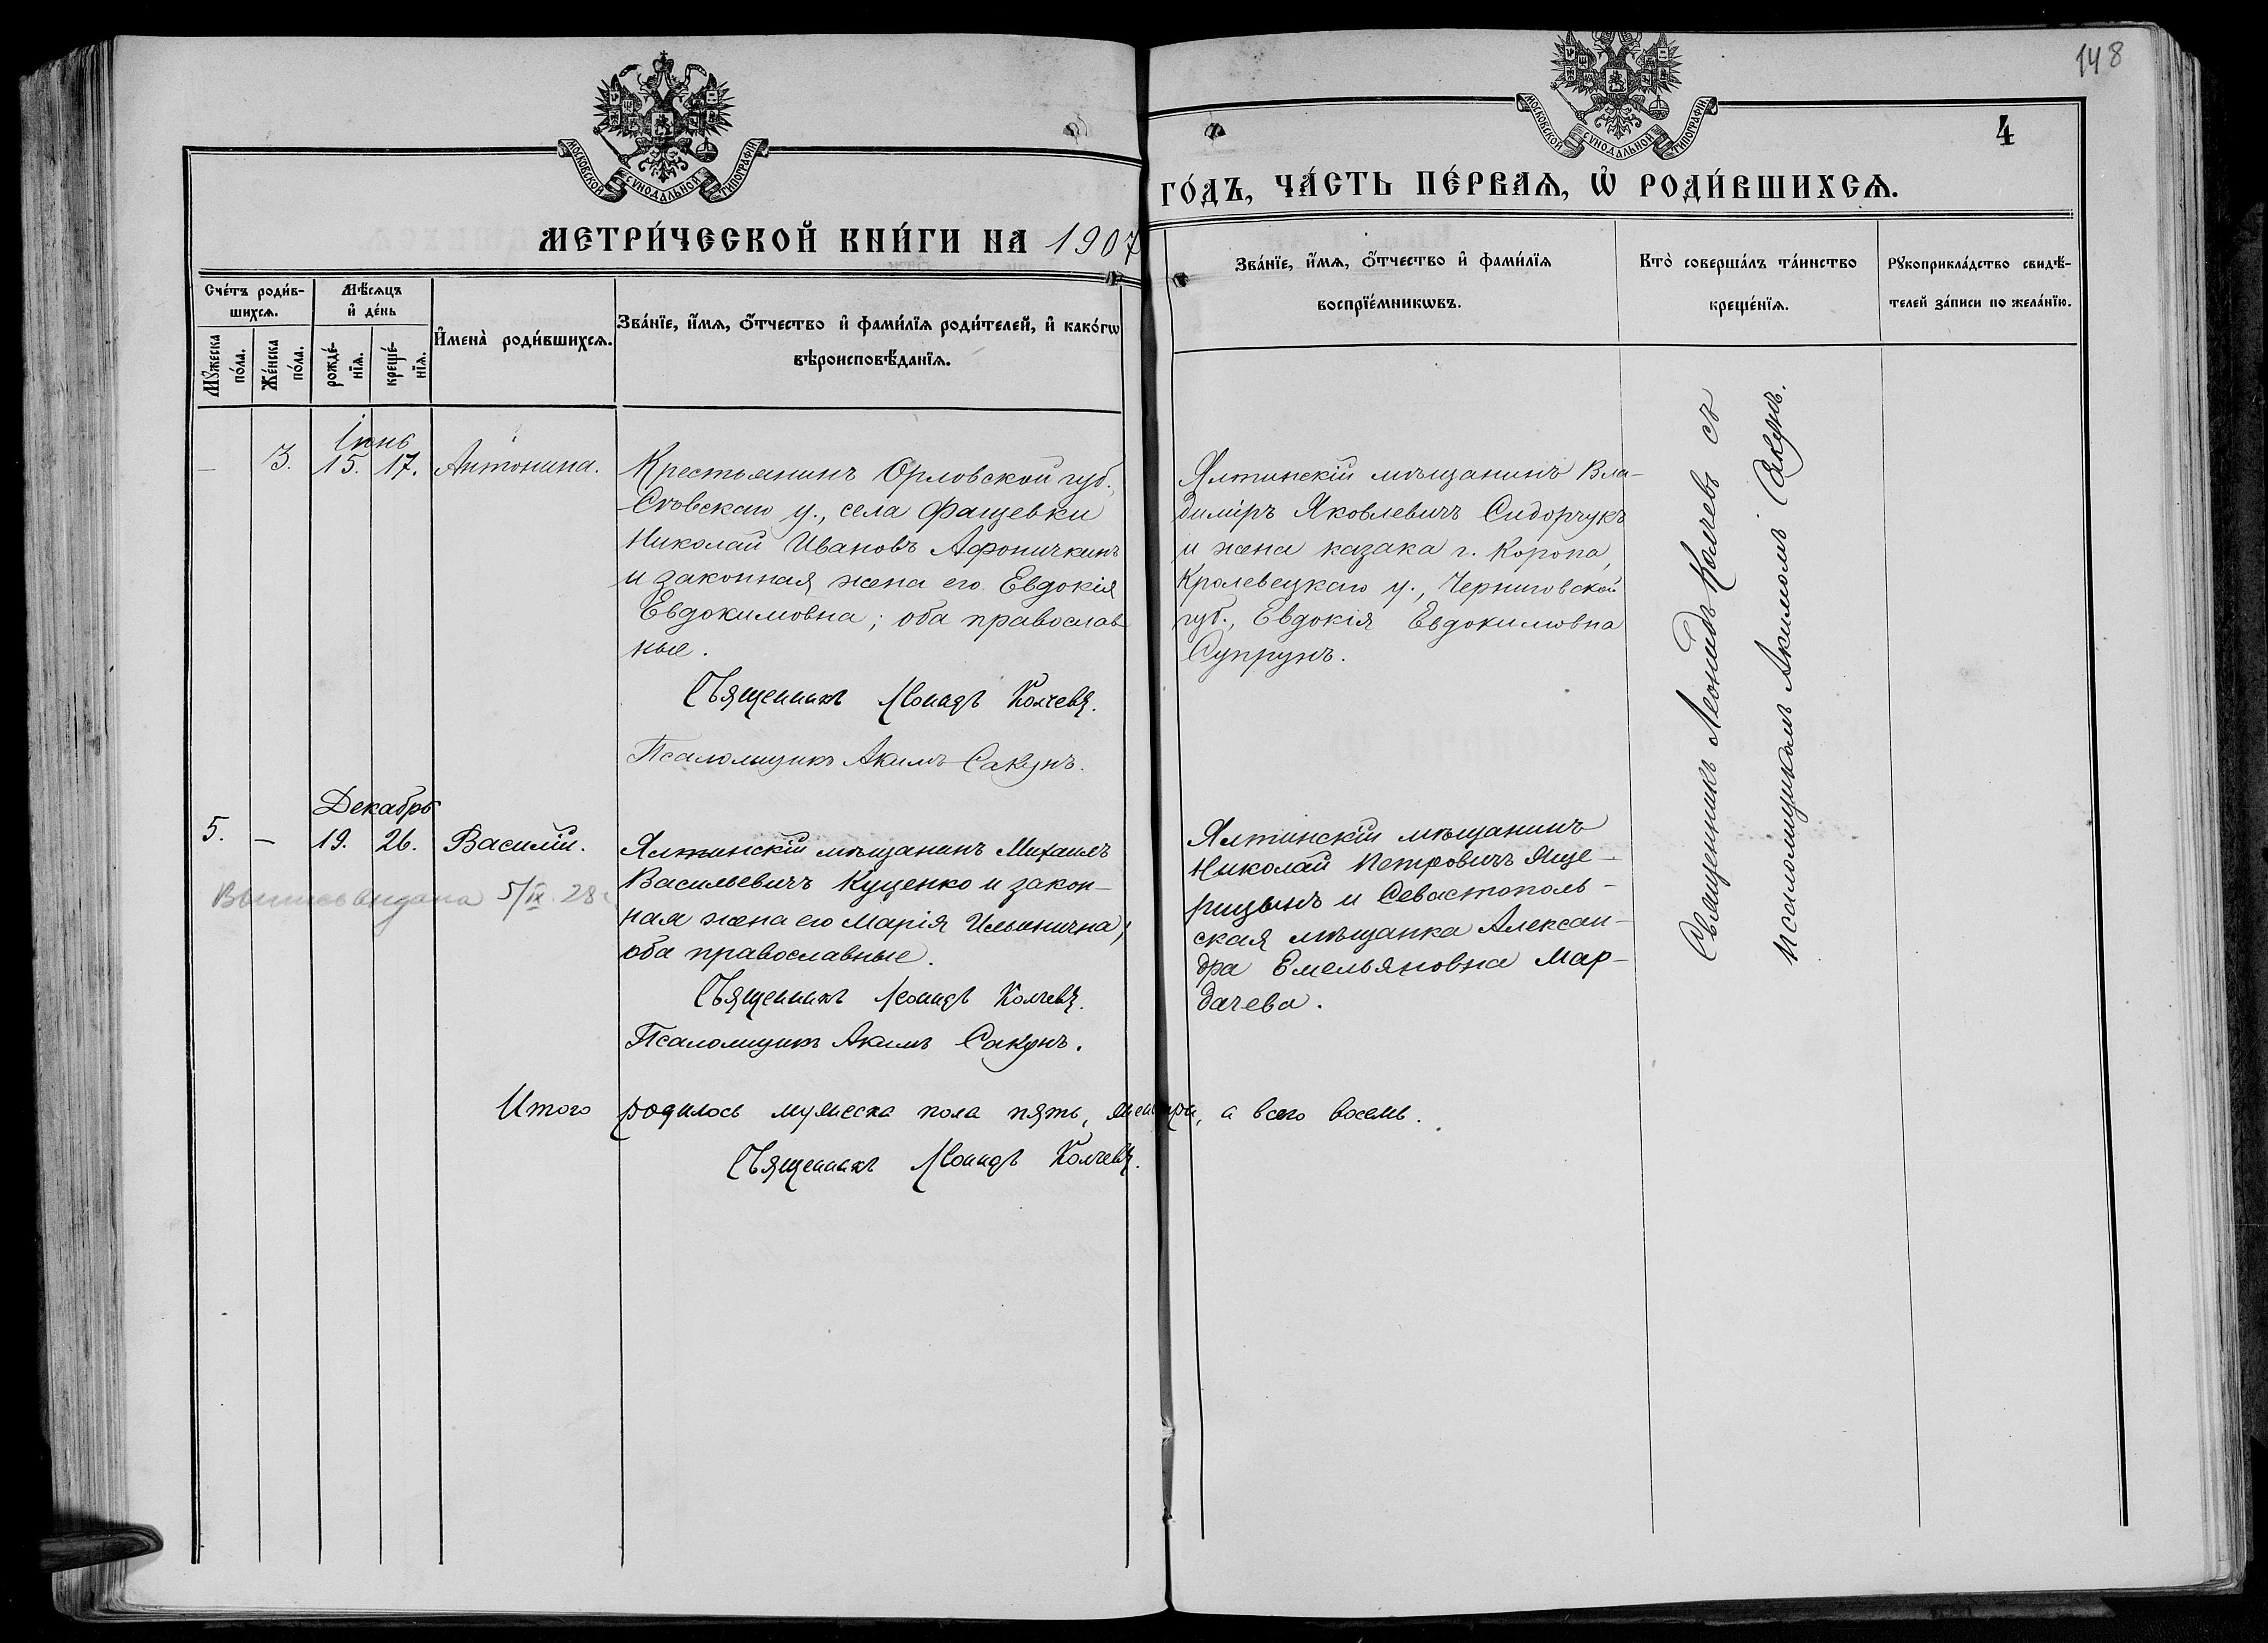 148
МОСКОВСКОЙ СѴНОДАЛЬНОЙ ТИПОГРАФІИ
МОСКОВСКОЙ СѴНОДАЛЬНОЙ ТИПОГРАФІИ
4
МЕТРИ́ЧЕСКОЙ КНИ́ГИ НА 1907
ГО́ДЪ, ЧА́СТЬ ПЕ́РВАѦ, Ѡ҆ РОДИ́ВШИХСѦ.
Сче́тъ роди́в-
шихсѧ.
Мꙋ́жеска по́ла.
Же́нска по́ла.
Мѣ́сѧцъ
и҆ де́нь
рожде́-
нїѧ.
креще́-
нїѧ.
И҆мена̀ роди́вшихсѧ.
Зва́нїе, и҆́мѧ, ѻ҆́тчество и҆ фами́лїѧ роди́телей, и҆ како́гѡ
вѣроисповѣ́данїѧ.
Зва́нїе, и҆́мѧ, ѻ҆́тчество и҆ фами́лїѧ
воспрїе́мникѡвъ.
Кто̀ соверша́лъ та́инство
креще́нїѧ.
Рꙋкоприкла́дство свидѣ́-
телей за́писи по жела́нїю.
Іюнь
— 3. 15. 17. Антонина.
Крестьянинъ Орловской губ.,
Сѣвскаго у., села Фащевки
Николай Ивановъ Афоничкинъ
и законная жена его Евдокія
Евдокимовна; оба православ
ные.
Священникъ Леонидъ Колчевъ.
Псаломщикъ Акимъ Сакунъ.
Ялтинскій мѣщанинъ Вла-
диміръ Яковлевичъ Сидорчукъ
и жена казака г. Коропа,
Кролевецкаго у., Черниговской
губ., Евдокія Евдокимовна
Супрунъ.
Священникъ Леонидъ Колчевъ съ
псаломщикомъ Акимомъ Сакунъ.
Декабрь
5. — 19. 26. Василій.
Выпись выдана 5/IX 28
Ялтинскій мѣщанинъ Михаилъ
Васильевичъ Куценко и закон-
ная жена его Марія Ильинична,
оба православные.
Священникъ Леонидъ Колчевъ.
Псаломщикъ Акимъ Сакунъ.
Ялтинскій мѣщанинъ
Николай Петровичъ Яще-
рицынъ и Севастополь-
ская мѣщанка Алексан-
дра Емельяновна Мар-
дачева.
Итого родилось мужеска пола пять, жен. три, а всего восемь.
Священникъ Леонидъ Колчевъ.